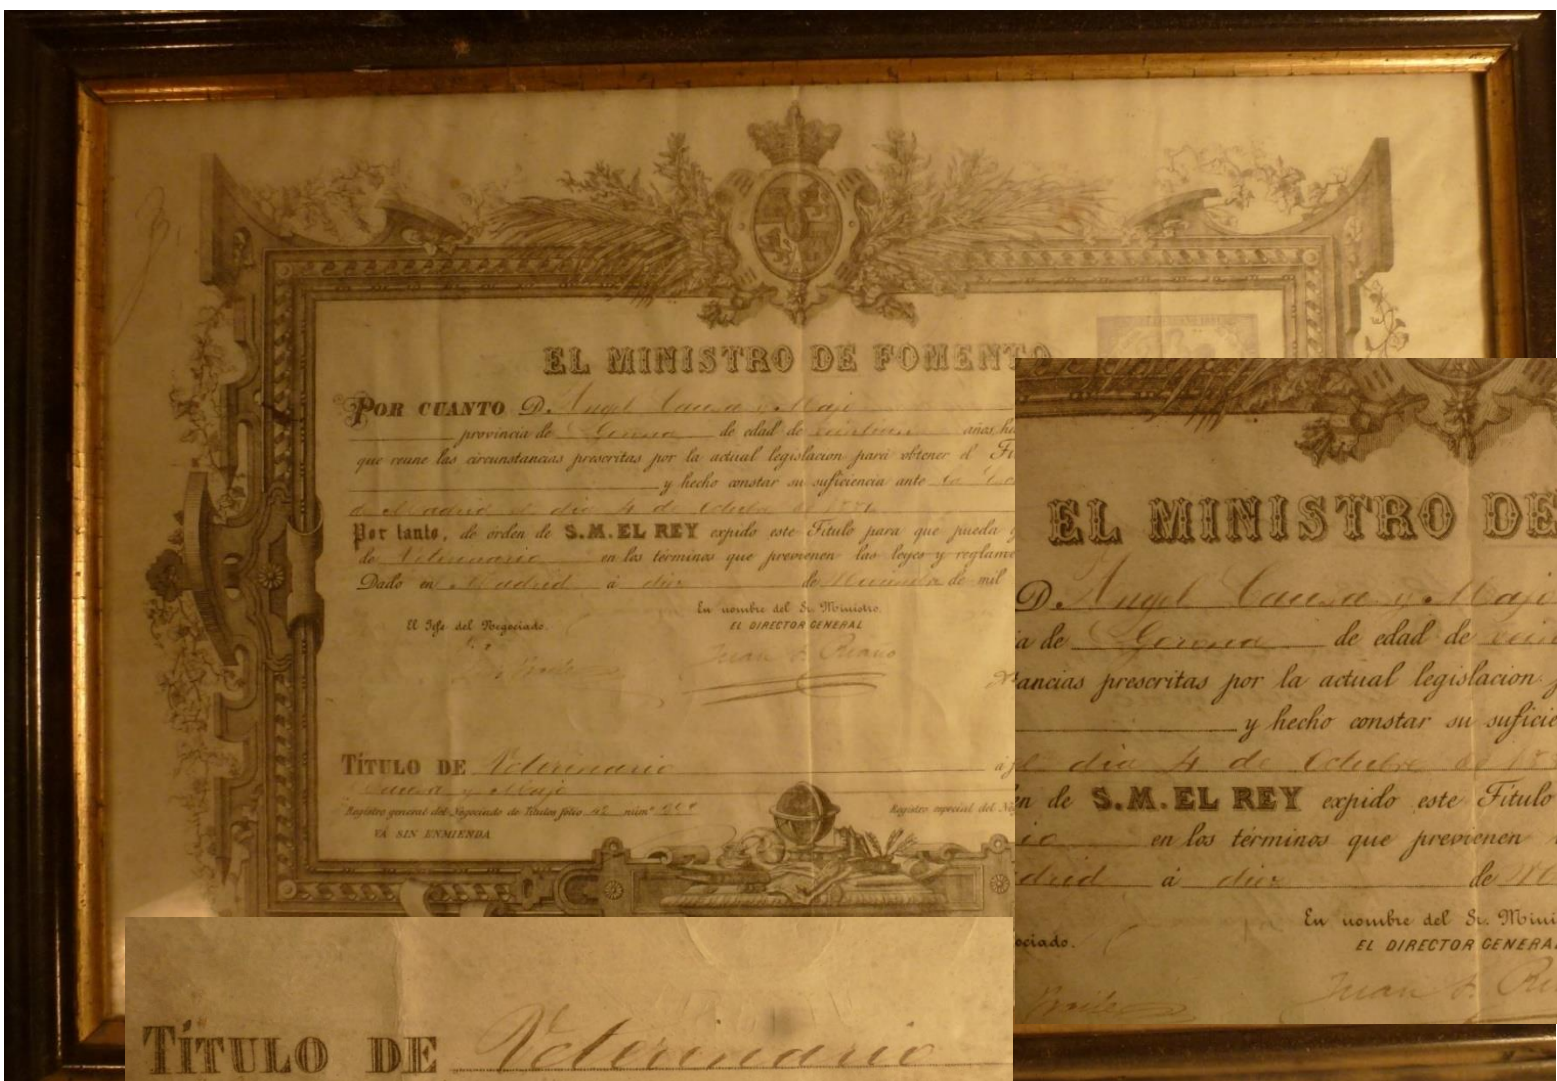 EL MINISTRO DE FOMENTO
POR CUANTO D. Angel Causa y Maji
provincia de Gerona de edad de años ha
que reune las circunstancias prescritas por la actual legislacion para obtener el
y hecho constar su suficiencia ante la
de Madrid el dia 4 de Octubre de
Por tanto, de orden de S.M. EL REY expido este Título para que pueda
de Veterinario en los términos que previenen las leyes y
Dado en Madrid á diez de de mil
En nombre del Sr. Ministro.
El Jefe del Negociado. EL DIRECTOR GENERAL
Juan F. Riaño
TÍTULO DE Veterinario
Causa y Maji
Registro general del Negociado de Títulos folio núm.º
Registro especial del
VÁ SIN ENMIENDA
EL MINISTRO DE
D. Angel Causa y Maji
de Gerona de edad de
prescritas por la actual legislacion
y hecho constar su
el dia 4 de Octubre de
de S.M. EL REY expido este Título
en los términos que previenen
á diez de
En nombre del Sr.
EL DIRECTOR GENERAL
Juan F.
TÍTULO DE Veterinario